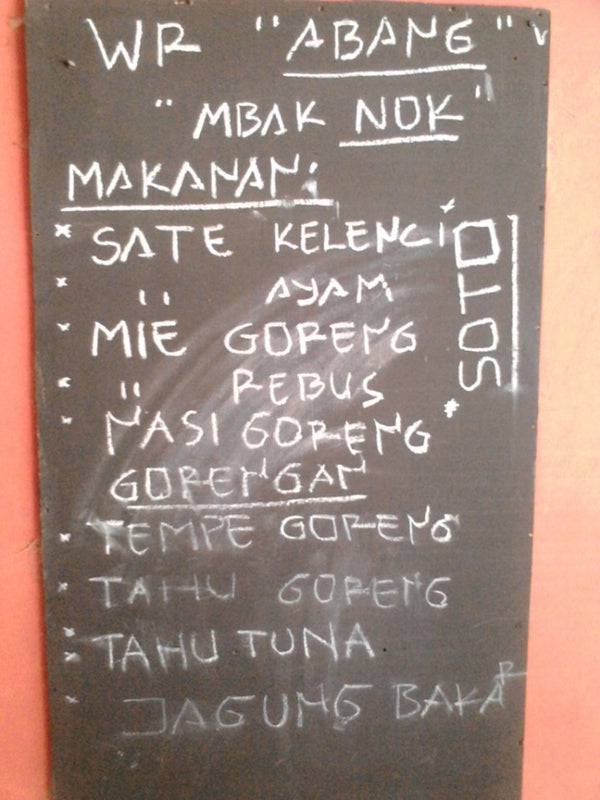 WR "ABANG"
"MBAK NOK"
MAKANAN:
* SATE KELENCI
* " AYAM
* MIE GORENG
* " REBUS
* NASI GORENG
GORENGAN
* TEMPE GORENG
* TAHU GORENG
* TAHU TUNA
* JAGUNG BAKAR
* SOTO